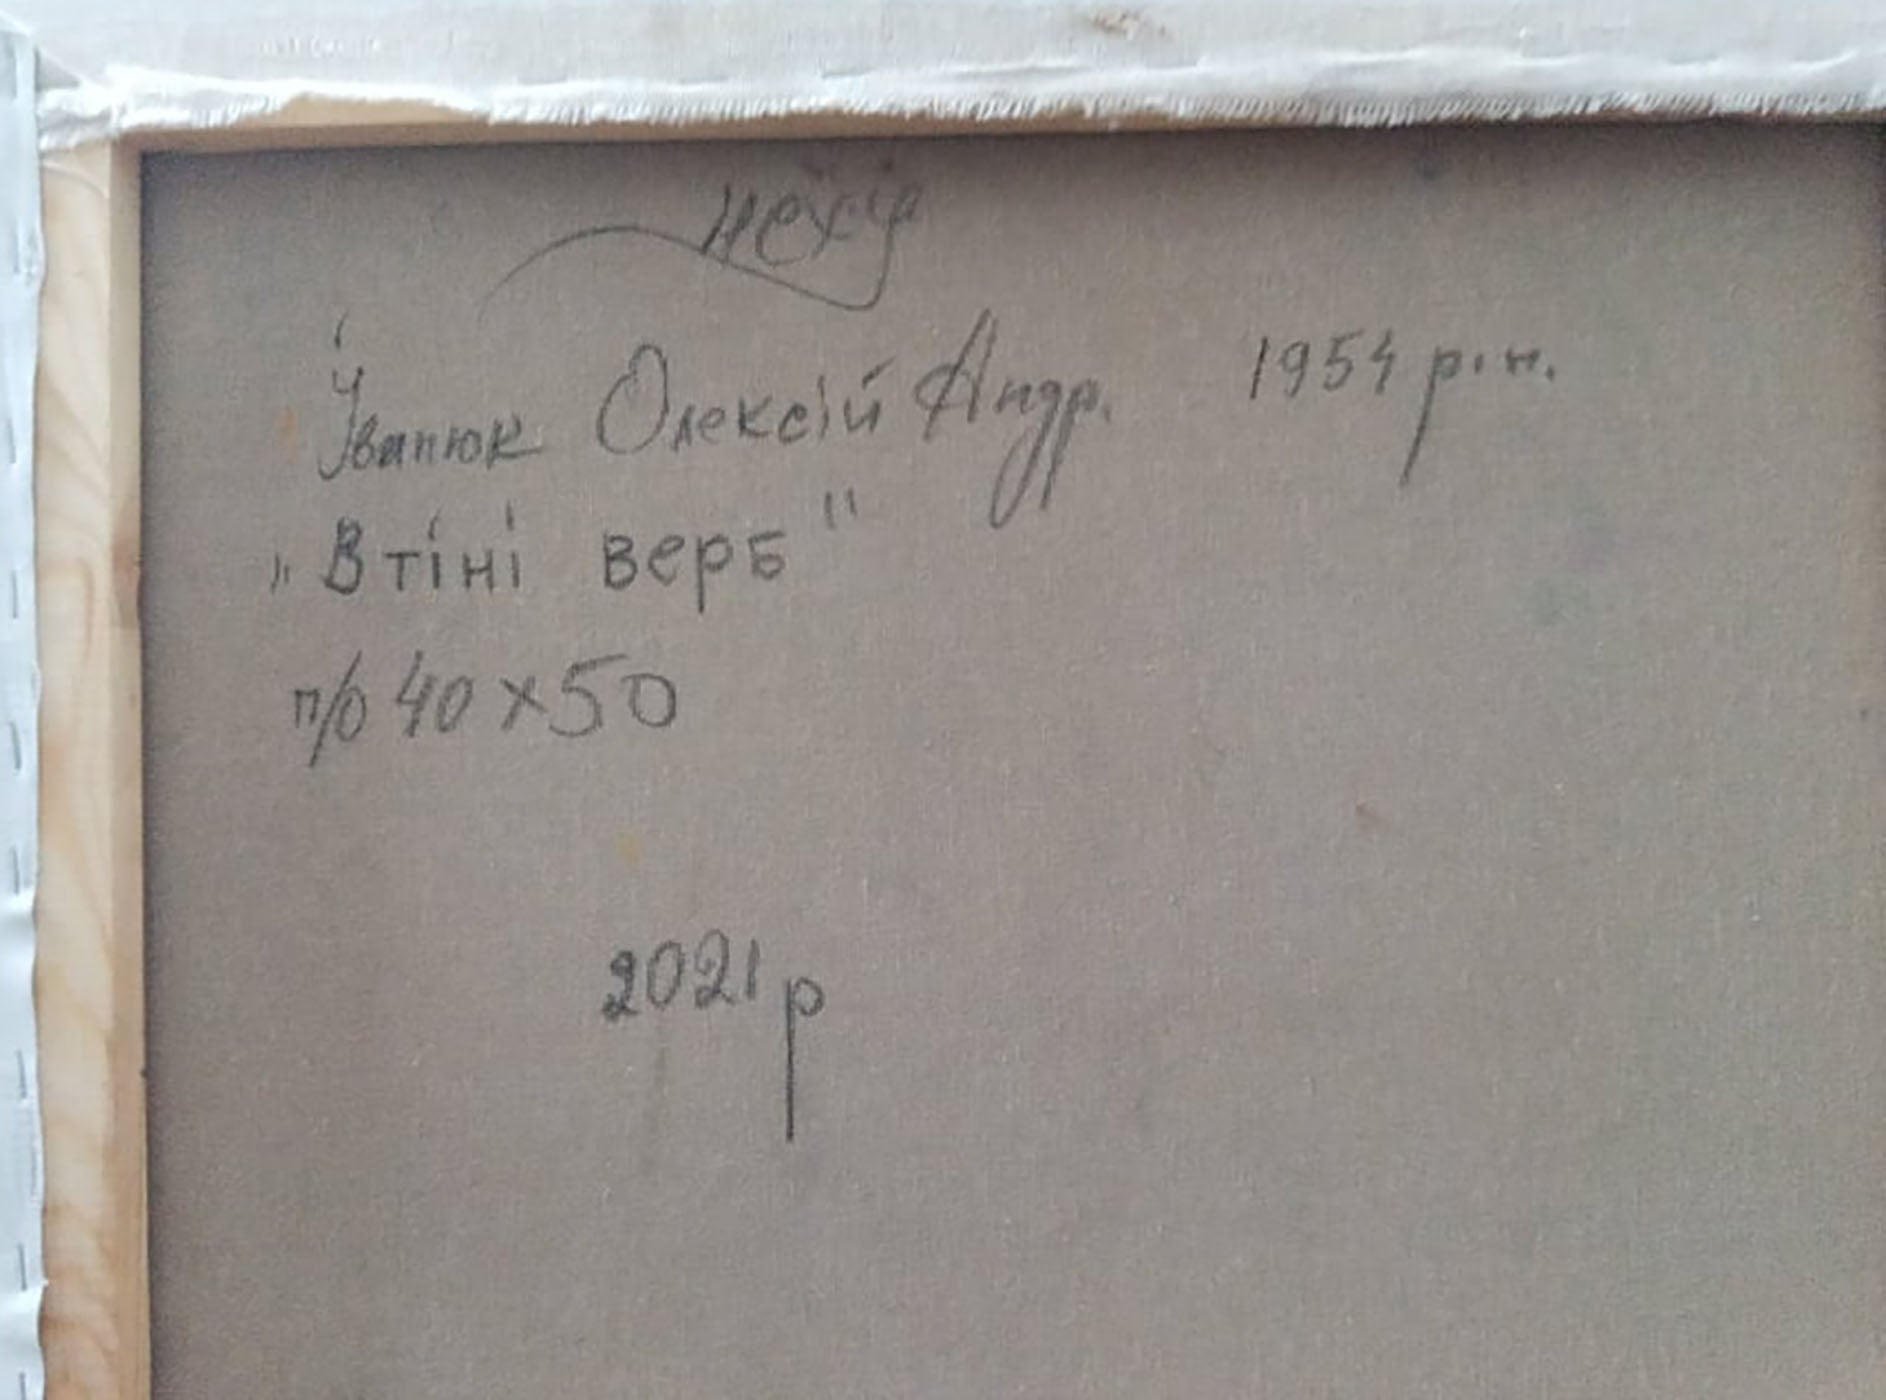 Іванюк Олексій Андр. 1954 р.н.
„В тіні верб"
п/о 40х50
2021 р